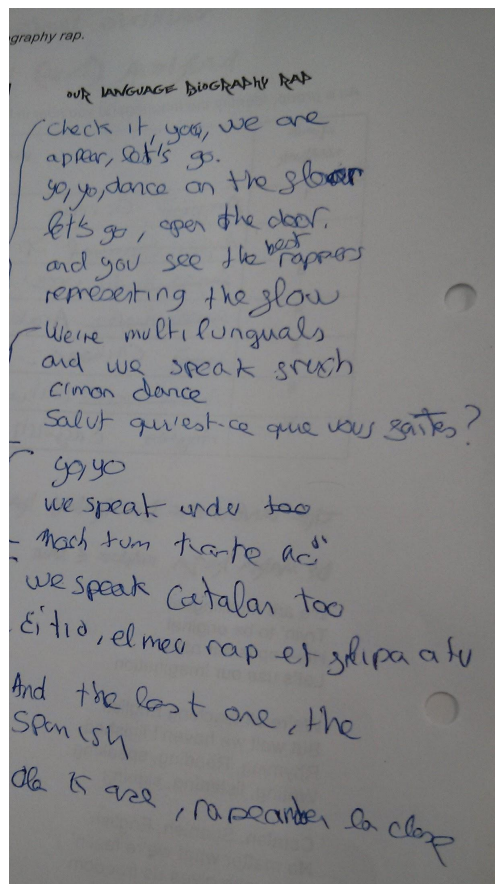 graphy rap.
OUR LANGUAGE BIOGRAPHY RAP
check it, you, we are
appear, let's go.
yo, yo, dance on the floor
let's go, open the door.
and you see the best rappers
representing the flow
We're multilunguals
and we speak french
c'mon dance
Salut qu'est-ce que vous faites?
yo, yo
we speak urdu too
tum
we speak Catalan too
Ei tio, el meu rap et flipa a tu
And the last one, the
Spanish
la clase